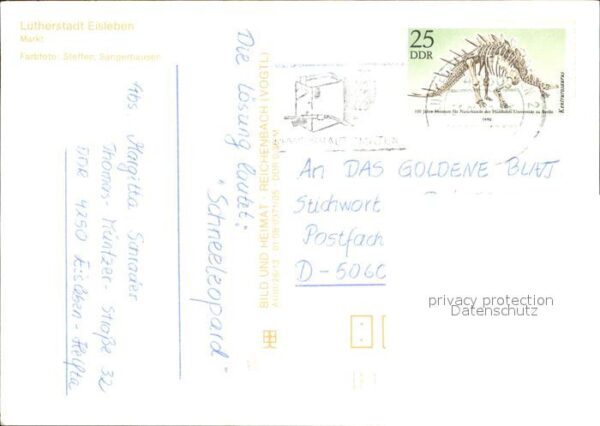 Lutherstadt Eisleben
Markt
Farbfoto: Steffen, Sangerhausen
Abs. Margitta
Thomas-Müntzer-Straße 32
DDR 4250 Eisleben-Helfta
Die Lösung lautet:
"Schneeleopard"
BILD UND HEIMAT · REICHENBACH (VOGTL)
25
DDR
100 Jahre Museum für Naturkunde der Humboldt-Universität zu Berlin
1990
Kentrurosaurus
An DAS GOLDENE BLATT
Stichwort
Postfach
D-5060
privacy protection
Datenschutz